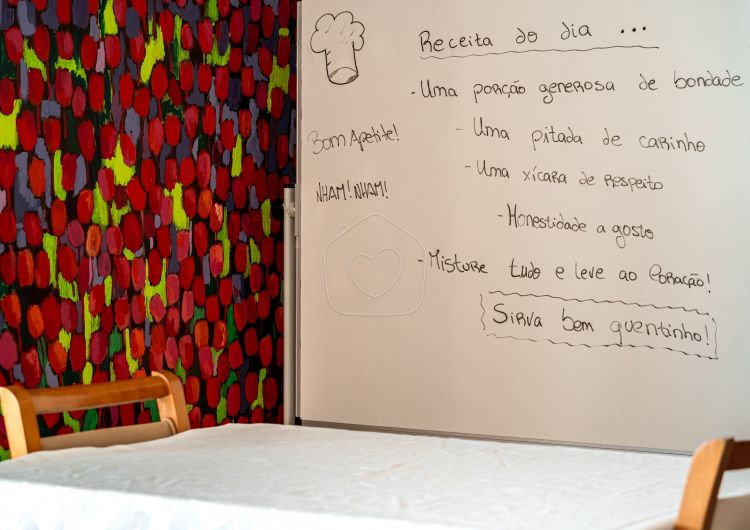 Receita do dia ...
- Uma porção generosa de bondade
- Uma pitada de carinho
- Uma xícara de respeito
- Honestidade a gosto
- Misture tudo e leve ao coração!
Sirva bem quentinho!
Bom Apetite!
NHAM! NHAM!